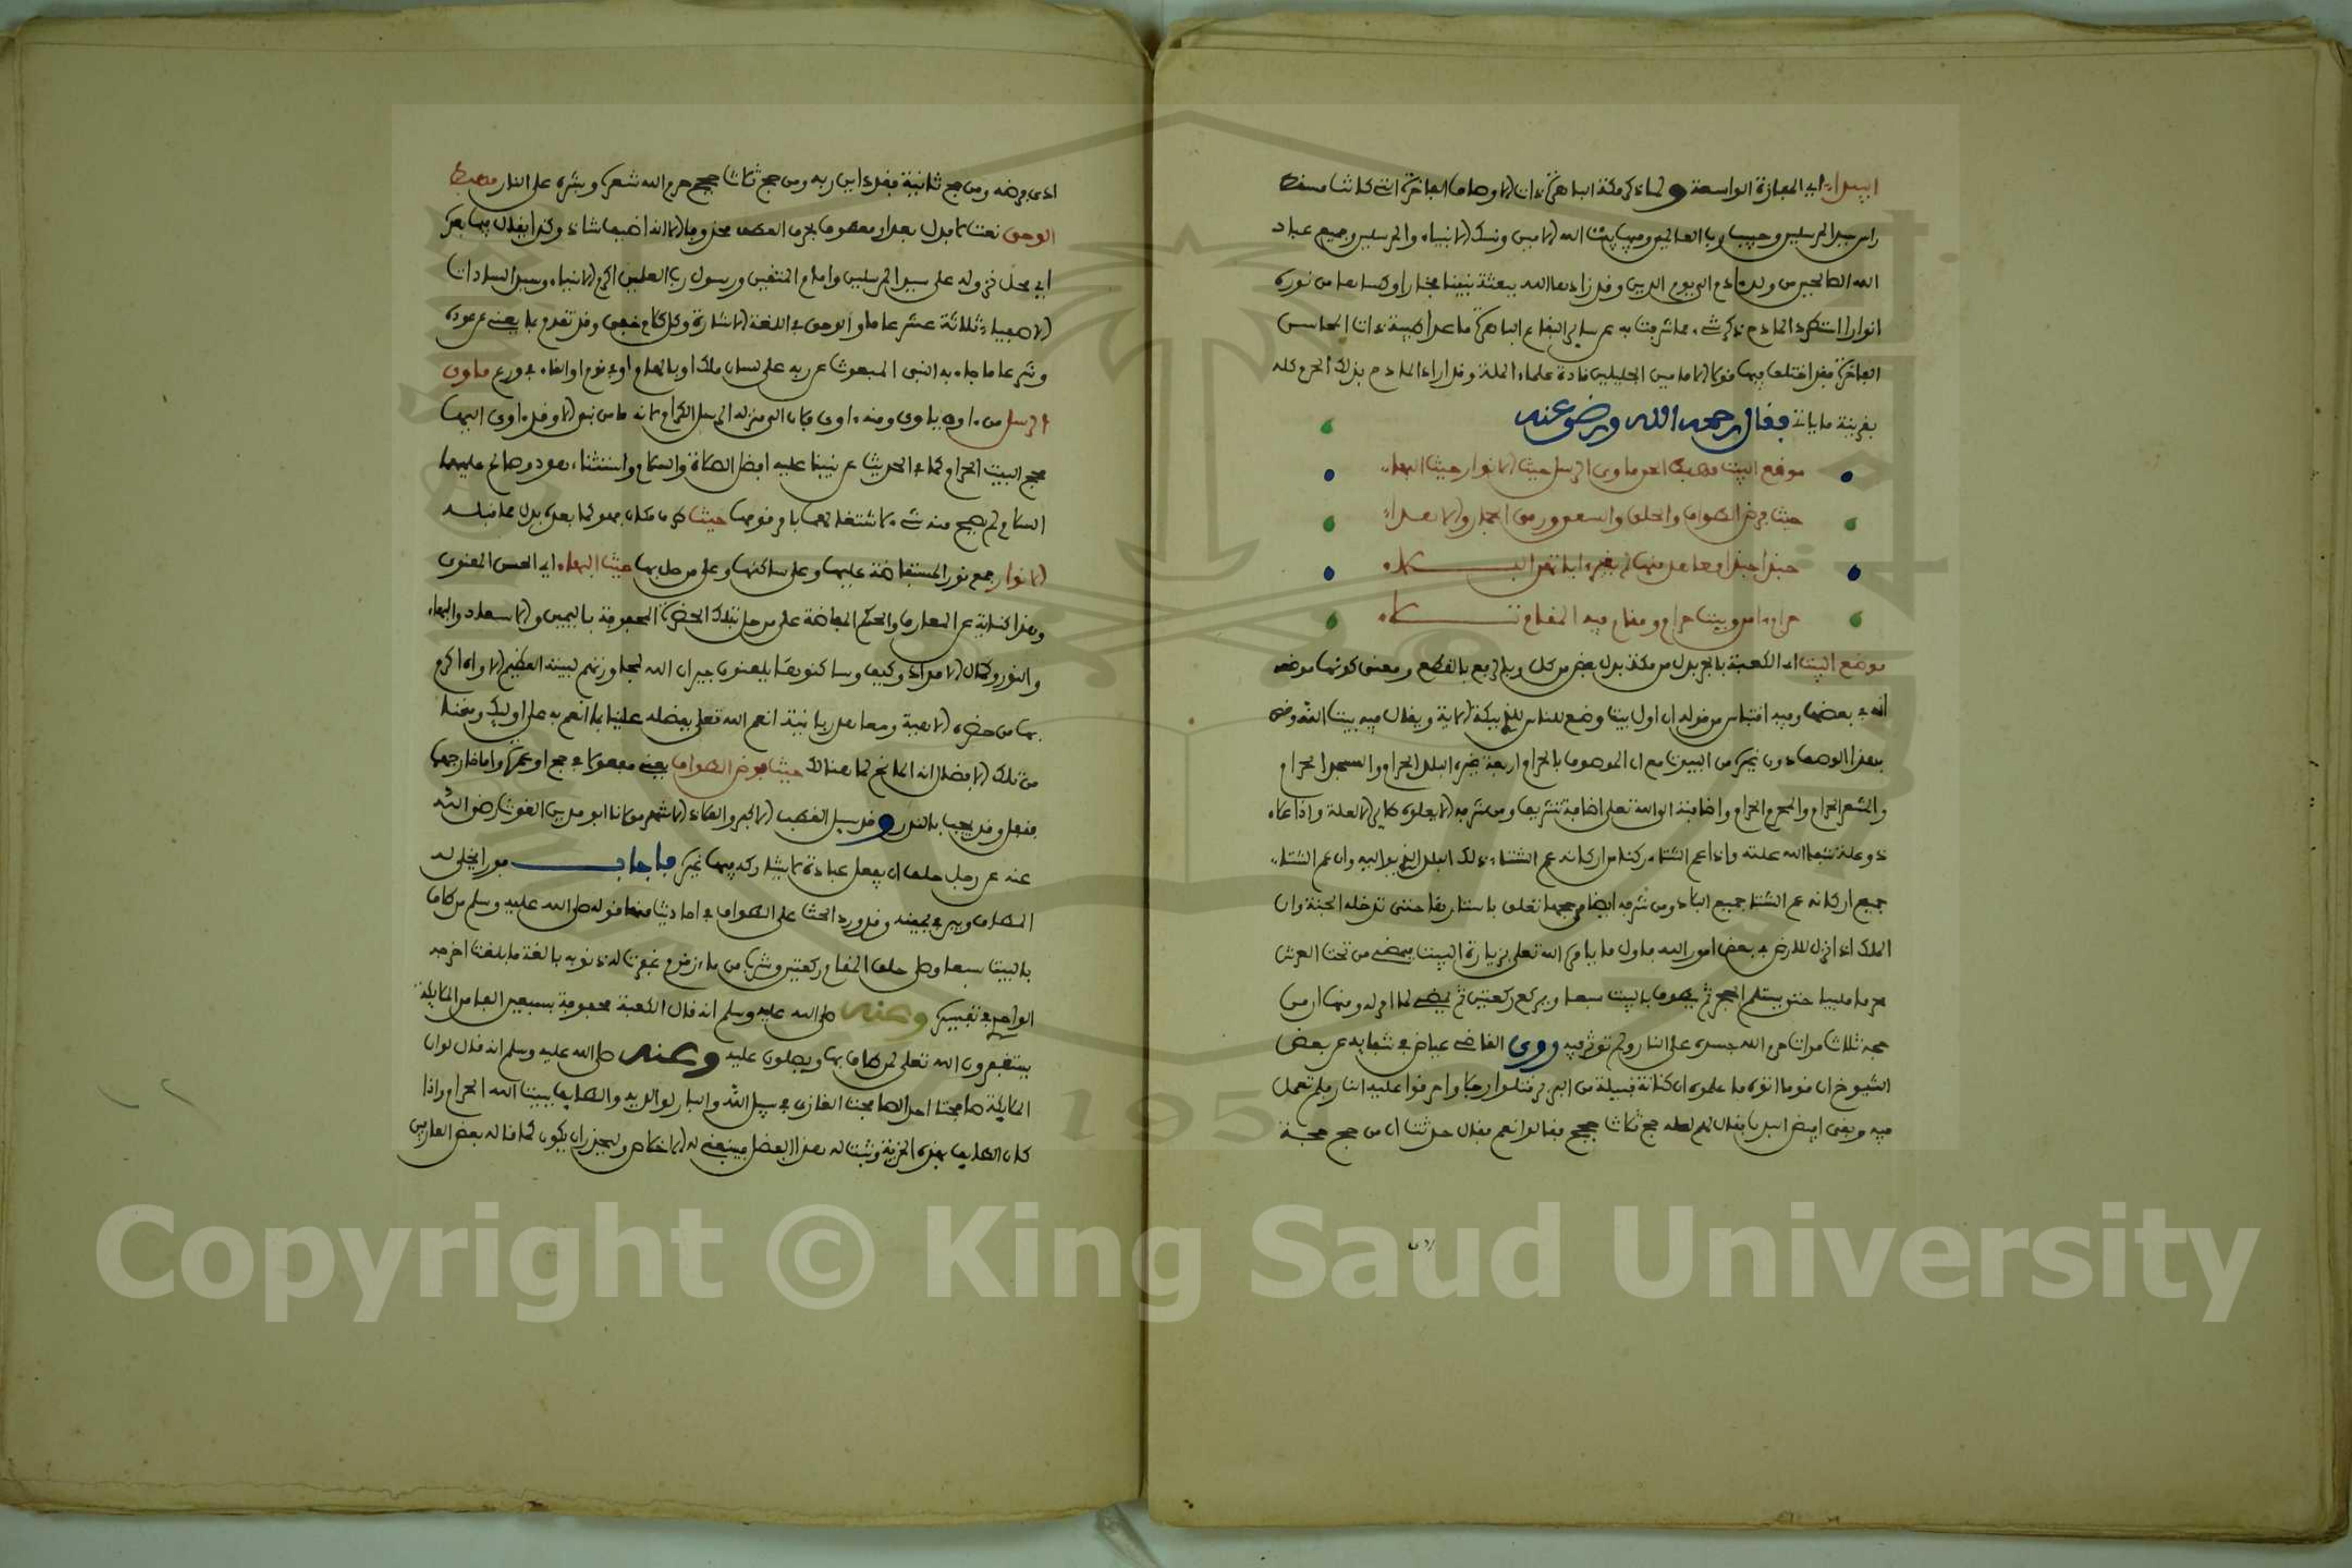 البيداء اي المفازة الواسعة ولما ذكر مكة الباهرة ذات الاوصاف الفاخرة التي كانت مسقط
راس سيد المرسلين وحبيب رب العالمين وفيها بيت الله الامين ونسك الانبياء والمرسلين وجميع عباد
الله الصالحين من ولد ءادم الى يوم الدين وقد زادها الله ببعثة نبينا فخارا وكساها من نوره
انوارا استطرد المادح ذكر شيء مما شرفت به عن ساير البقاع الباهرة ما عدا طيبة ذات المحاسن
الفاخرة فقد اختلف فيها قول الامامين الجليلين قادة علماء الملة وقد اراد المادح بذلك الحرم كله
بقرينة ما ياتي فقال رحمه الله ورضي عنه
موضع البيت مهبط الوحي ماوى الرسل حيث الانوار حيث البهاء
حيث فرض الطواف والحلق والسعي ورمي الجمار والاهداء
حبذا حبذا معاهد منها لم يغير ءاياتهن البلاء
حرم ءامن وبيت حرام ومقام فيه المقام تلاء
موضع البيت اي الكعبة بالجر بدل من مكة بدل بعض من كل وبالرفع بالقطع ومعنى كونها موضعه
انه في بعضها وفيه اقتباس من قوله ان اول بيت وضع للناس للذي ببكة الاية ويقال فيه بيت الله وخص
بهذا الوصف دون غيره من البيوت مع ان الموصوف بالحرام اربعة غيره البلد الحرام والمسجد الحرام
والمشعر الحرام والمحرم الحرام واضافته الى الله تعلى اضافة تشريف ومن شرفه الا يعلوه طاير الا لعلة واذا علاه
ذو علة شفا الله علته واذا عم الشتاء ركنا من اركانه عم الشتاء ذلك البلد الذي يواليه وان عم الشتاء
جميع اركانه عم الشتا جميع البلاد ومن شرفه ايضا من حجها تعلق باستارها حتى تدخله الجنة وان
الملك اذا نزل للارض في بعض امور الله فاول ما يامره الله تعلى بزيارة البيت فيمضي من تحت العرش
محرما ملبيا حتى يستلم الحجر ثم يطوف بالبيت سبعا ويركع ركعتين ثم يمضي لما امر له ومنها ان من
حجه ثلاث مرات حرم الله جسده على النار ولم توثر فيه وروى القاضي عياض في شفايه عن بعض
الشيوخ ان قوما اتوه فاعلموه ان كتامة قبيلة من البربر قتلوا رجلا واضرموا عليه النار فلم تعمل
فيه وبقي ابيض البدن فقال لهم لعله حج ثلاث حجج فقالوا نعم فقال حدثت ان من حج حجة
ادى
ادى فرضه ومن حج ثانية فقد داين ربه ومن حج ثلاث حجج حرم الله شعره وبشره على النار مهبط
الوحي نعت لا بدل بعدا ومعطوف بحرف العطف محذوفا الا ان اضيف شاذ وكذا يقال فيما بعده
اي محل نزوله على سيد المرسلين وامام المتقين ورسول رب العلمين اكرم الانبياء وسيد السادات
الاصفياء ثلاثة عشر عاما والوحي في اللغة الاشارة وكل كلام خفي وقد تقدم ما يغني عن عوده
وشرعا ما جاء به النبي المبعوث عن ربه على لسان ملك او بالهام او في نوم او القاء في روع ماوى
الرسل من ءاوى ياوي ومنه ءاوى فكان الى منزله المرسل الكرام لانه ما من نبي الا وقد ءاوى اليها
حج البيت الحرام كما في الحديث عن نبينا عليه افضل الصلاة والسلام واستثناء هود وصالح عليهما
السلام لم يصح منه شيء لاشتغالهما بامر قومهما حيث ظرف مكان فهو كما بعده بدل مما قبله
الانوار جمع نور المستفاضة عليها وعلى ساكنها وعلى من حل بها حيث البهاء اي الحسن المعنوي
وهذا كناية عن المعارف والحكم المفاضة على من حل بتلك الحضرة المحفوفة باليمن والاسعاد والبهاء
والنور وكمال الامداد وكيف وساكنوها يلعنون جيران الله لمجاورتهم لبيته العظيم الاواه اكرم
بها من حضرة الاهية ومعاهد ربانية انعم الله تعلى بفضله علينا بما انعم به على اوليك ومنحنا
من تلك الافضال انه المانح لما هنالك حيث فرض الطواف يعني مفعولا في حج او عمرة واما خارجها
فنفل وقد يجب بالنذر وقد سيل القطب الاكبر والملاذ الاشهر مولانا ابو مدين الغوث رضي الله
عنه عن رجل حلف ان يفعل عبادة لا يشاركه فيها غيره فاجاب فورا يخلى له
المطاف ويبر في يمينه وقد ورد الحث على الطواف في احاديث منها قوله صلى الله عليه وسلم من طاف
بالبيت سبعا وصلى خلف المقام ركعتين وشرب من ماء زمزم غفرت له ذنوبه بالغة ما بلغت اخرجه
الواحدي في تفسيره وعنه صلى الله عليه وسلم انه قال الكعبة محفوفة بسبعين الفا من الملايكة
يستغفرون الله تعلى لمن طاف بها ويصلون عليه وعنه صلى الله عليه وسلم انه قال لو ان
الملايكة صافحت احدا لصافحت الغازي في سبيل الله والبار لوالديه والطايف ببيت الله الحرام واذا
كان الطايف بهذه المزية وثبت له هذا الفضل فينبغي له الاخلاص وليحذر ان يكون كما قاله بعض العارفين